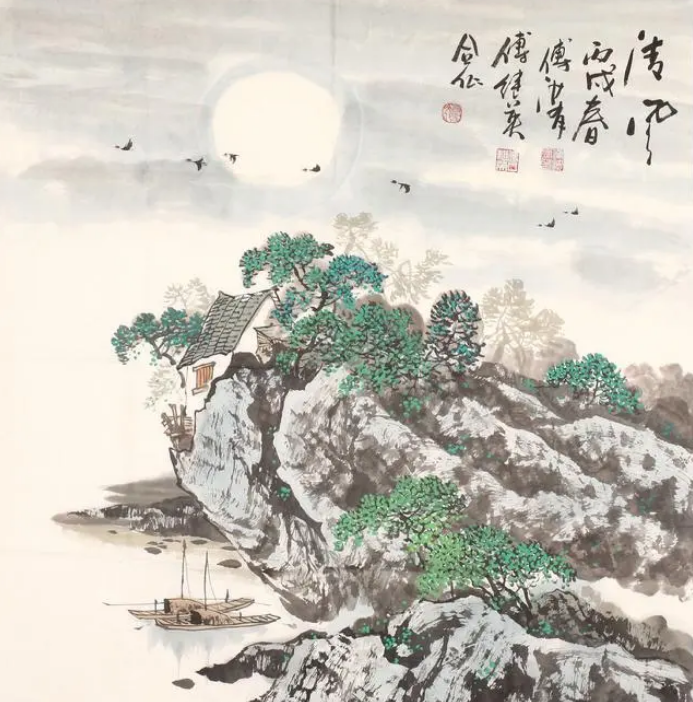 清风
丙戌春
傅
傅继英
合作